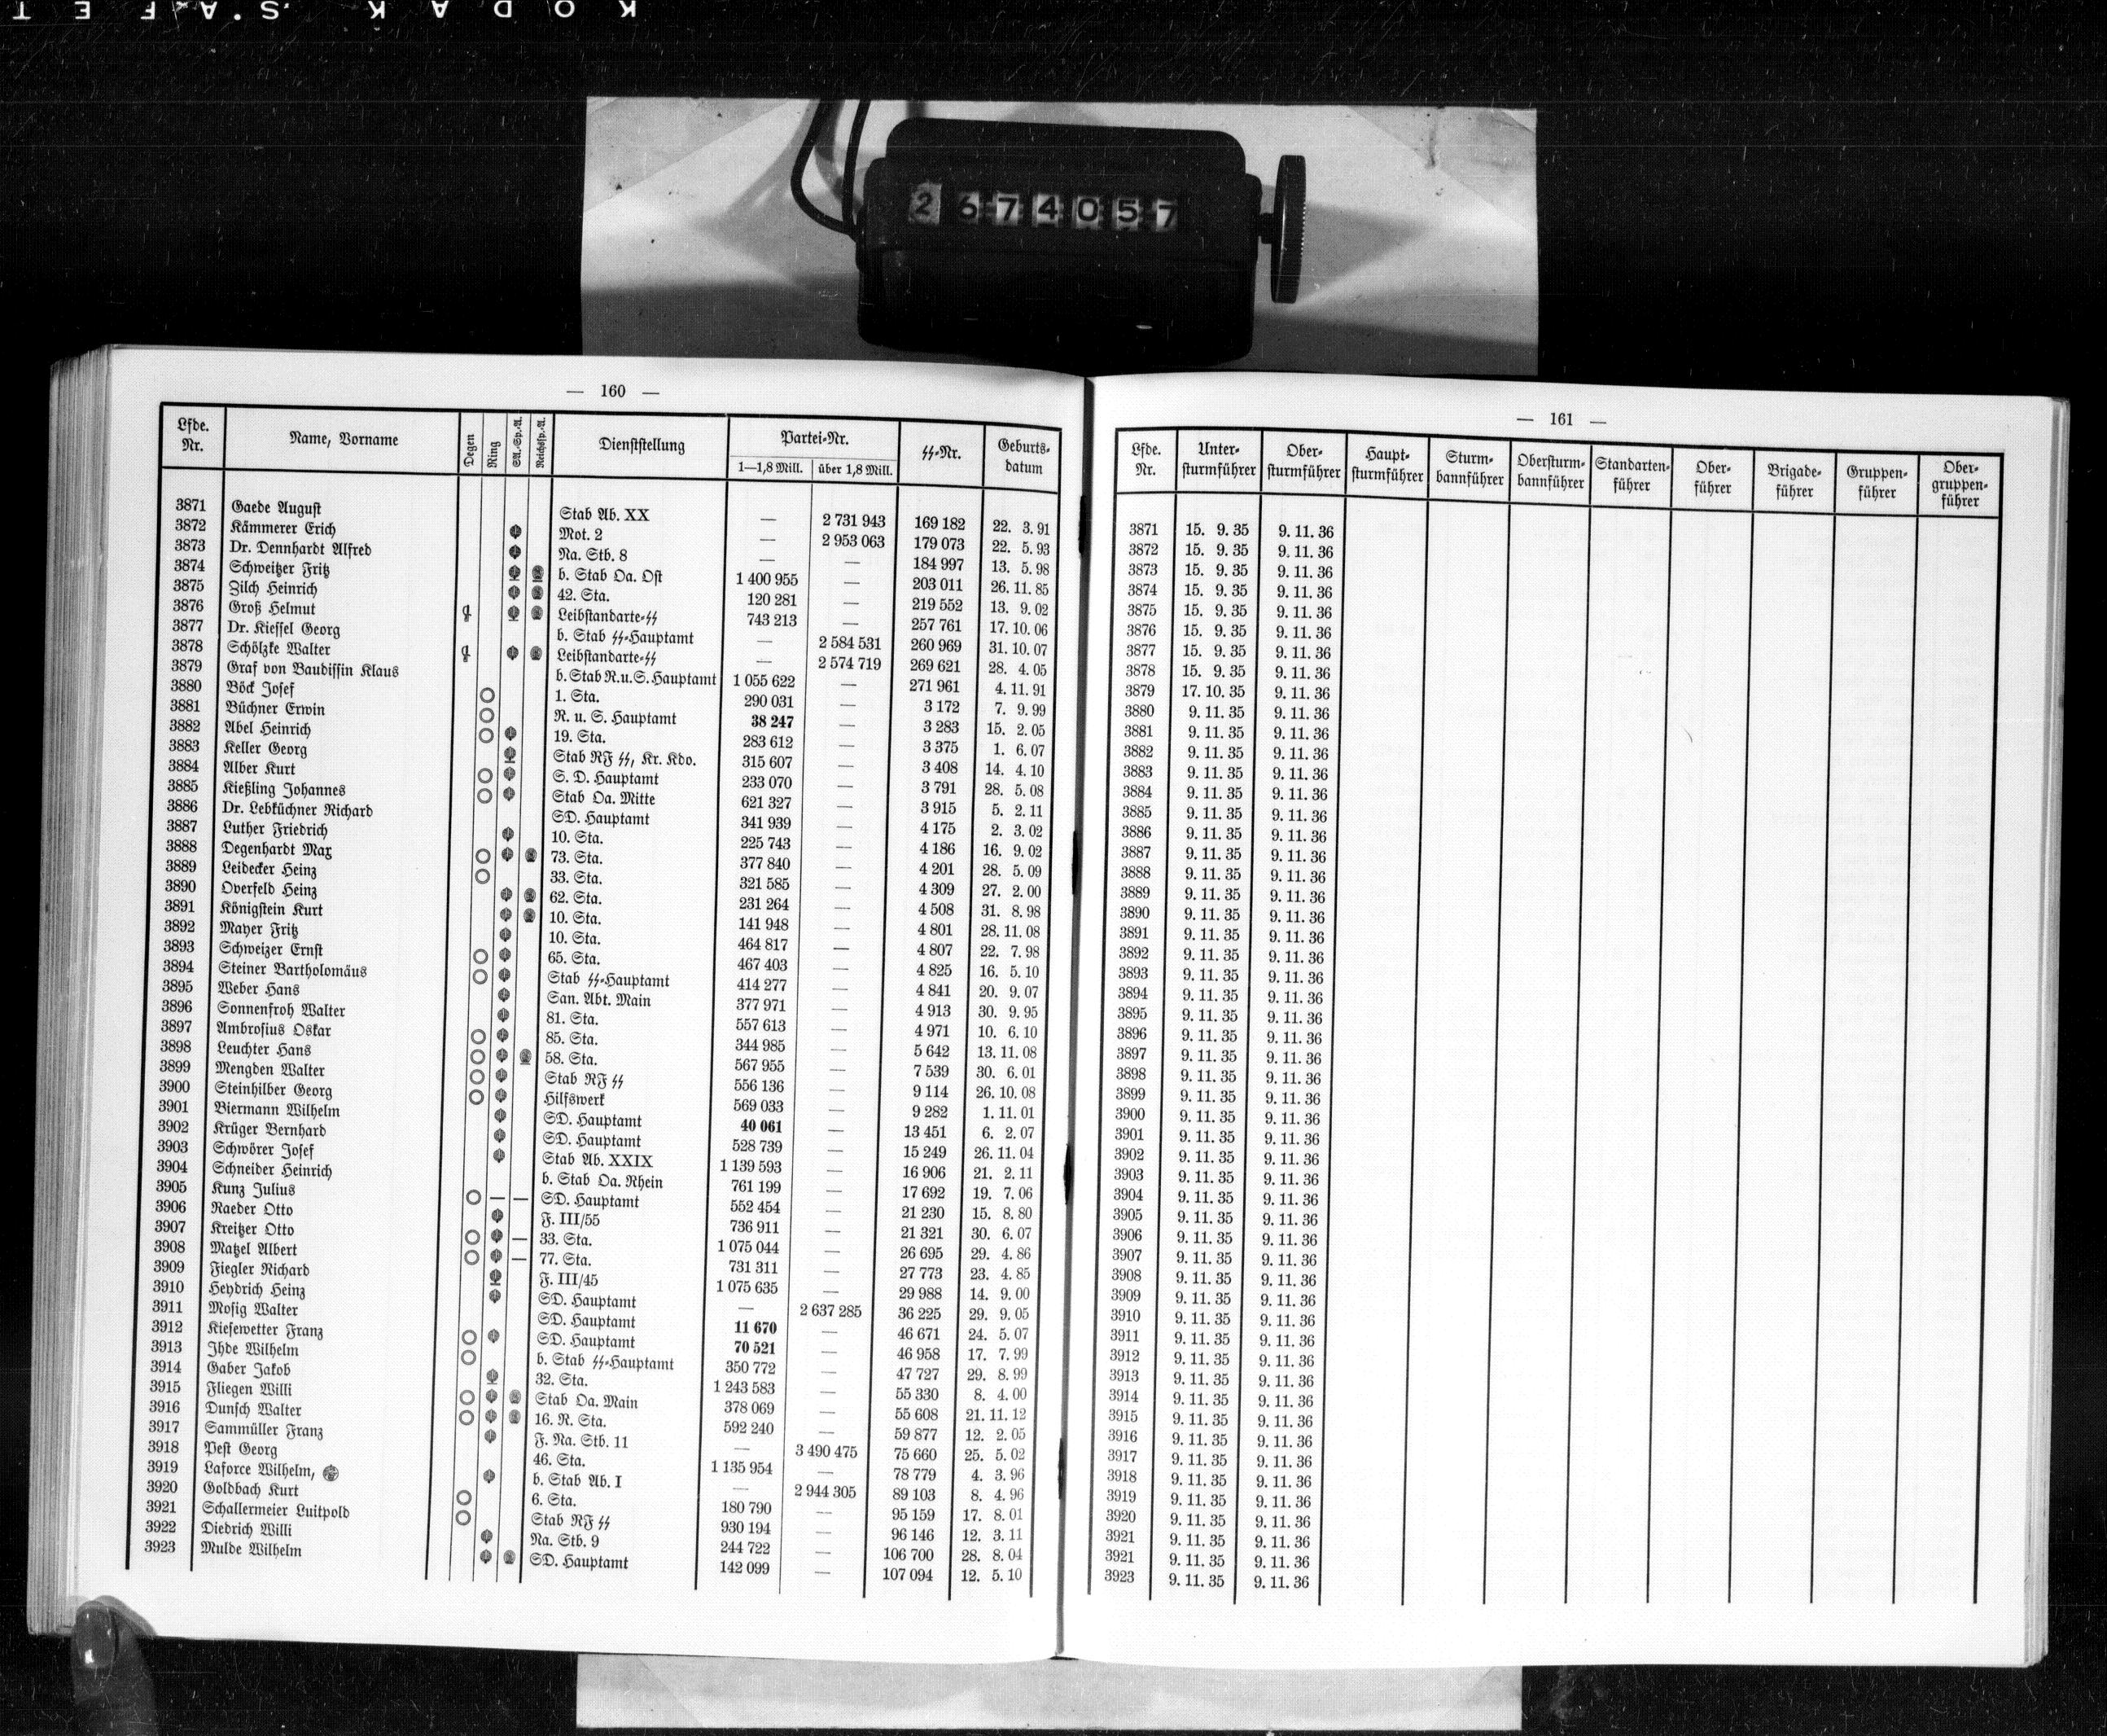 KODAK SAFET
2674057
— 160 —
Lfde. Nr. Name, Vorname Degen Ring SA.-Sp.-A. Reichssp.-A. Dienststellung Partei-Nr. 1—1,8 Mill. über 1,8 Mill. SS-Nr. Geburts-datum
3871 Gaede August Stab Ab. XX — 2 731 943 169 182 22. 3. 91
3872 Kämmerer Erich Mot. 2 — 2 953 063 179 073 22. 5. 93
3873 Dr. Dennhardt Alfred Na. Stb. 8 — — 184 997 13. 5. 98
3874 Schweitzer Fritz b. Stab Oa. Ost 1 400 955 — 203 011 26. 11. 85
3875 Zilch Heinrich 42. Sta. 120 281 — 219 552 13. 9. 02
3876 Groß Helmut Leibstandarte-SS 743 213 — 257 761 17. 10. 06
3877 Dr. Kiessel Georg b. Stab SS-Hauptamt — 2 584 531 260 969 31. 10. 07
3878 Schölzke Walter Leibstandarte-SS — 2 574 719 269 621 28. 4. 05
3879 Graf von Baudissin Klaus b. Stab R. u. S. Hauptamt 1 055 622 — 271 961 4. 11. 91
3880 Böck Josef 1. Sta. 290 031 — 3 172 7. 9. 99
3881 Büchner Erwin R. u. S. Hauptamt 38 247 — 3 283 15. 2. 05
3882 Abel Heinrich 19. Sta. 283 612 — 3 375 1. 6. 07
3883 Keller Georg Stab RF SS, Kr. Kdo. 315 607 — 3 408 14. 4. 10
3884 Alber Kurt S. D. Hauptamt 233 070 — 3 791 28. 5. 08
3885 Kießling Johannes Stab Oa. Mitte 621 327 — 3 915 5. 2. 11
3886 Dr. Lebküchner Richard SD. Hauptamt 341 939 — 4 175 2. 3. 02
3887 Luther Friedrich 10. Sta. 225 743 — 4 186 16. 9. 02
3888 Degenhardt Max 73. Sta. 377 840 — 4 201 28. 5. 09
3889 Leidecker Heinz 33. Sta. 321 585 — 4 309 27. 2. 00
3890 Overfeld Heinz 62. Sta. 231 264 — 4 508 31. 8. 98
3891 Königstein Kurt 10. Sta. 141 948 — 4 801 28. 11. 08
3892 Mayer Fritz 10. Sta. 464 817 — 4 807 22. 7. 98
3893 Schweizer Ernst 65. Sta. 467 403 — 4 825 16. 5. 10
3894 Steiner Bartholomäus Stab SS-Hauptamt 414 277 — 4 841 20. 9. 07
3895 Weber Hans San. Abt. Main 377 971 — 4 913 30. 9. 95
3896 Sonnenfroh Walter 81. Sta. 557 613 — 4 971 10. 6. 10
3897 Ambrosius Oskar 85. Sta. 344 985 — 5 642 13. 11. 08
3898 Leuchter Hans 58. Sta. 567 955 — 7 539 30. 6. 01
3899 Mengden Walter Stab RF SS 556 136 — 9 114 26. 10. 08
3900 Steinhilber Georg Hilfswerk 569 033 — 9 282 1. 11. 01
3901 Biermann Wilhelm SD. Hauptamt 40 061 — 13 451 6. 2. 07
3902 Krüger Bernhard SD. Hauptamt 528 739 — 15 249 26. 11. 04
3903 Schwörer Josef Stab Ab. XXIX 1 139 593 — 16 906 21. 2. 11
3904 Schneider Heinrich b. Stab Oa. Rhein 761 199 — 17 692 19. 7. 06
3905 Kunz Julius — — SD. Hauptamt 552 454 — 21 230 15. 8. 80
3906 Raeder Otto F. III/55 736 911 — 21 321 30. 6. 07
3907 Kreitzer Otto — 33. Sta. 1 075 044 — 26 695 29. 4. 86
3908 Matzel Albert — 77. Sta. 731 311 — 27 773 23. 4. 85
3909 Fiegler Richard F. III/45 1 075 635 — 29 988 14. 9. 00
3910 Heydrich Heinz SD. Hauptamt — 2 637 285 36 225 29. 9. 05
3911 Mosig Walter SD. Hauptamt 11 670 — 46 671 24. 5. 07
3912 Kiesewetter Franz SD. Hauptamt 70 521 — 46 958 17. 7. 99
3913 Ihde Wilhelm b. Stab SS-Hauptamt 350 772 — 47 727 29. 8. 99
3914 Gaber Jakob 32. Sta. 1 243 583 — 55 330 8. 4. 00
3915 Fliegen Willi Stab Oa. Main 378 069 — 55 608 21. 11. 12
3916 Dunsch Walter 16. R. Sta. 592 240 — 59 877 12. 2. 05
3917 Sammüller Franz F. Na. Stb. 11 — 3 490 475 75 660 25. 5. 02
3918 Pest Georg 46. Sta. 1 135 954 — 78 779 4. 3. 96
3919 Laforce Wilhelm, b. Stab Ab. I — 2 944 305 89 103 8. 4. 96
3920 Goldbach Kurt 6. Sta. 180 790 — 95 159 17. 8. 01
3921 Schallermeier Luitpold Stab RF SS 930 194 — 96 146 12. 3. 11
3922 Diedrich Willi Na. Stb. 9 244 722 — 106 700 28. 8. 04
3923 Mulde Wilhelm SD. Hauptamt 142 099 — 107 094 12. 5. 10
— 161 —
Lfde. Nr. Unter-sturmführer Ober-sturmführer Haupt-sturmführer Sturm-bannführer Obersturm-bannführer Standarten-führer Ober-führer Brigade-führer Gruppen-führer Ober-gruppen-führer
3871 15. 9. 35 9. 11. 36
3872 15. 9. 35 9. 11. 36
3873 15. 9. 35 9. 11. 36
3874 15. 9. 35 9. 11. 36
3875 15. 9. 35 9. 11. 36
3876 15. 9. 35 9. 11. 36
3877 15. 9. 35 9. 11. 36
3878 15. 9. 35 9. 11. 36
3879 17. 10. 35 9. 11. 36
3880 9. 11. 35 9. 11. 36
3881 9. 11. 35 9. 11. 36
3882 9. 11. 35 9. 11. 36
3883 9. 11. 35 9. 11. 36
3884 9. 11. 35 9. 11. 36
3885 9. 11. 35 9. 11. 36
3886 9. 11. 35 9. 11. 36
3887 9. 11. 35 9. 11. 36
3888 9. 11. 35 9. 11. 36
3889 9. 11. 35 9. 11. 36
3890 9. 11. 35 9. 11. 36
3891 9. 11. 35 9. 11. 36
3892 9. 11. 35 9. 11. 36
3893 9. 11. 35 9. 11. 36
3894 9. 11. 35 9. 11. 36
3895 9. 11. 35 9. 11. 36
3896 9. 11. 35 9. 11. 36
3897 9. 11. 35 9. 11. 36
3898 9. 11. 35 9. 11. 36
3899 9. 11. 35 9. 11. 36
3900 9. 11. 35 9. 11. 36
3901 9. 11. 35 9. 11. 36
3902 9. 11. 35 9. 11. 36
3903 9. 11. 35 9. 11. 36
3904 9. 11. 35 9. 11. 36
3905 9. 11. 35 9. 11. 36
3906 9. 11. 35 9. 11. 36
3907 9. 11. 35 9. 11. 36
3908 9. 11. 35 9. 11. 36
3909 9. 11. 35 9. 11. 36
3910 9. 11. 35 9. 11. 36
3911 9. 11. 35 9. 11. 36
3912 9. 11. 35 9. 11. 36
3913 9. 11. 35 9. 11. 36
3914 9. 11. 35 9. 11. 36
3915 9. 11. 35 9. 11. 36
3916 9. 11. 35 9. 11. 36
3917 9. 11. 35 9. 11. 36
3918 9. 11. 35 9. 11. 36
3919 9. 11. 35 9. 11. 36
3920 9. 11. 35 9. 11. 36
3921 9. 11. 35 9. 11. 36
3921 9. 11. 35 9. 11. 36
3923 9. 11. 35 9. 11. 36